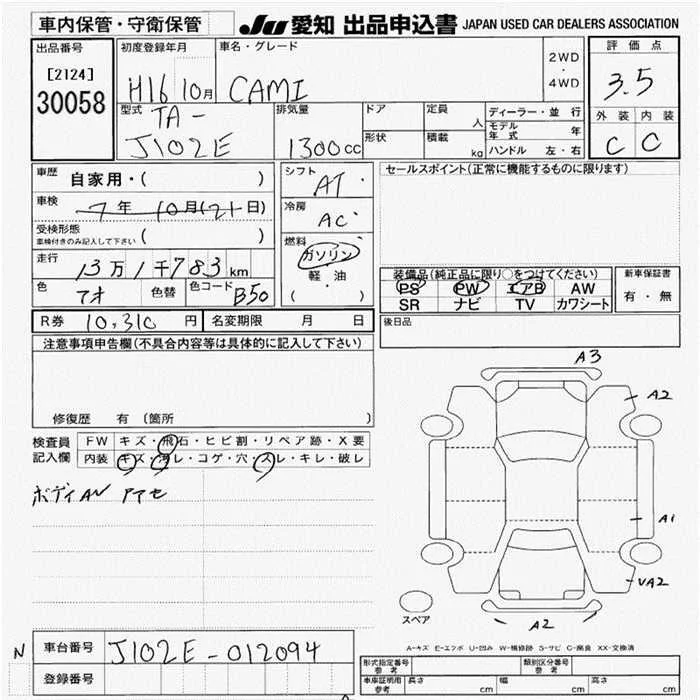 車内保管・守衛保管
JU 愛知 出品申込書 JAPAN USED CAR DEALERS ASSOCIATION
出品番号
[2124]
30058
初度登録年月
H16 10月
車名・グレード
CAMI
2WD
・
4WD
評価点
3.5
外装 内装
C C
型式
TA-
J102E
排気量
1300cc
ドア
形状
定員
人
積載
kg
ディーラー・並行
モデル年式 年
ハンドル 左・右
車歴 自家用・( )
車検 7年10月(21日)
受検形態
車検付きのみ記入して下さい ( )
走行
13万1千783km
色
アオ
色替
色コード
B50
シフト
AT
冷房
AC
燃料
ガソリン
軽油
( ・ )
セールスポイント(正常に機能するものに限ります)
装備品(純正品に限り○をつけてください)
PS PW エアB AW
SR ナビ TV カワシート
新車保証書
有・無
R券 10,310円 名変期限 月 日
後日品
注意事項申告欄(不具合内容等は具体的に記入して下さい)
修復歴 有 (箇所 )
検査員
記入欄
FW キズ・飛石・ヒビ割・リペア跡・X要
内装 キズ・汚レ・コゲ・穴・スレ・キレ・破レ
ボディAN アアセ
A3
A2
A1
VA2
A2
スペア
A-キズ E-エクボ U-凹み W-補修跡 S-サビ C-腐食 XX-交換済
N
車台番号 J102E-012094
登録番号
形式指定番号
参考
類別区分番号
参考
車庫証明用
参考
長さ cm
幅 cm
高さ cm